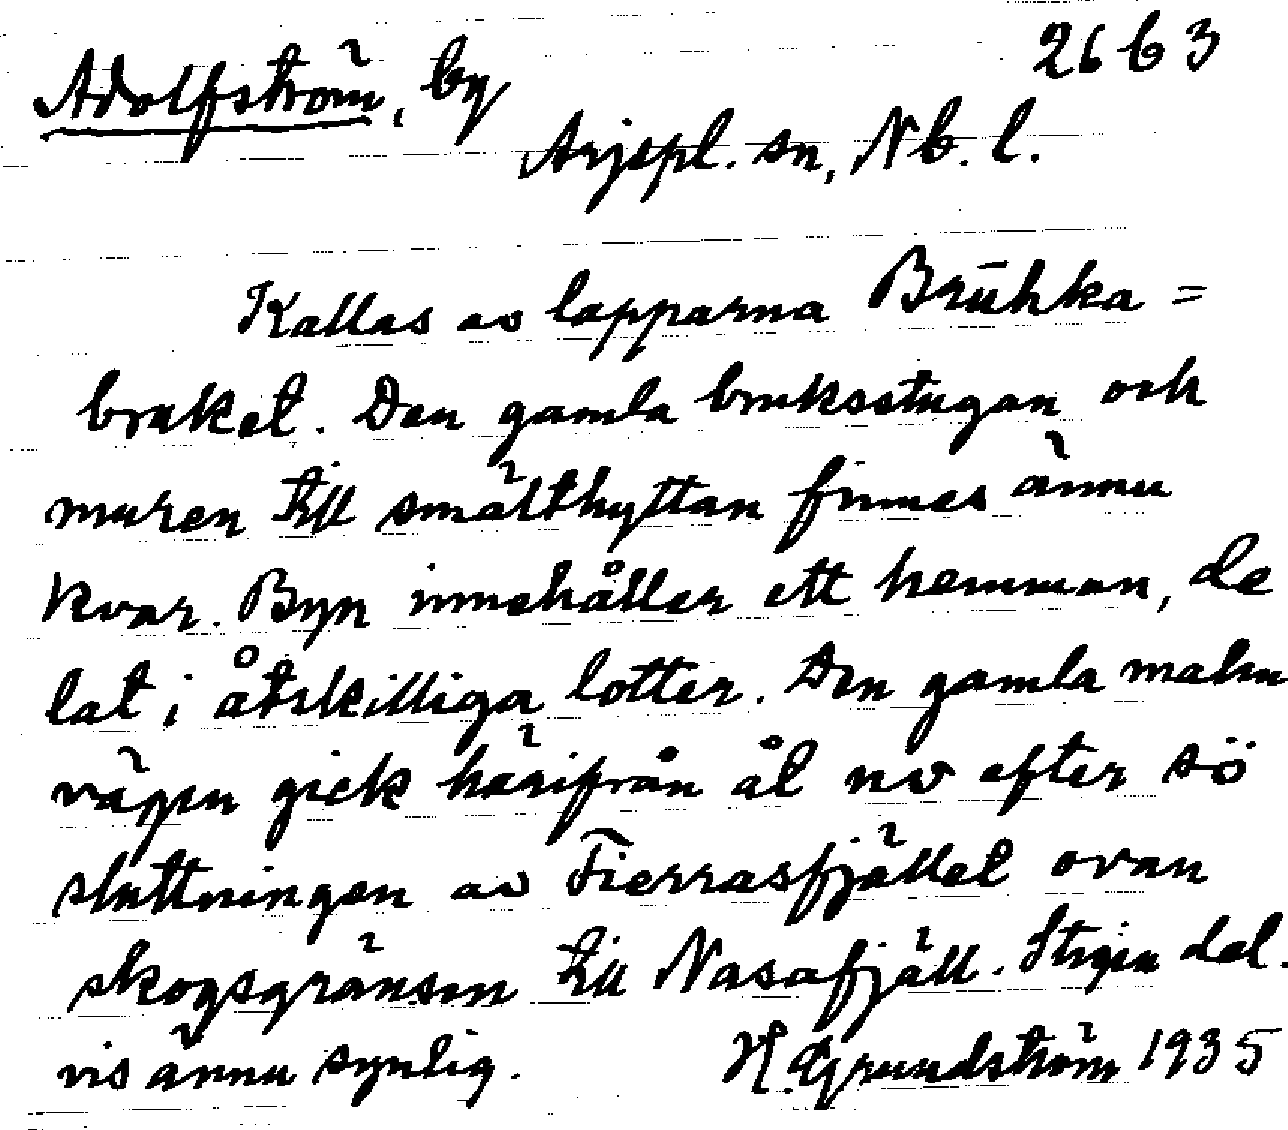 2663
Adolfström, by
Arjepl. sn, Nb. l.
Kallas av lapparna Brūhka =
bruket. Den gamla bruksstugan och
muren till smälthyttan finnes ännu
kvar. Byn innehåller ett hemman, de
lat i åtskilliga lotter. Den gamla malm
vägen gick härifrån åt nv efter sö
sluttningen av Tierrasfjället ovan
skogsgränsen till Nasafjäll. Stigen del.
vis ännu synlig. H. Grundström 1935